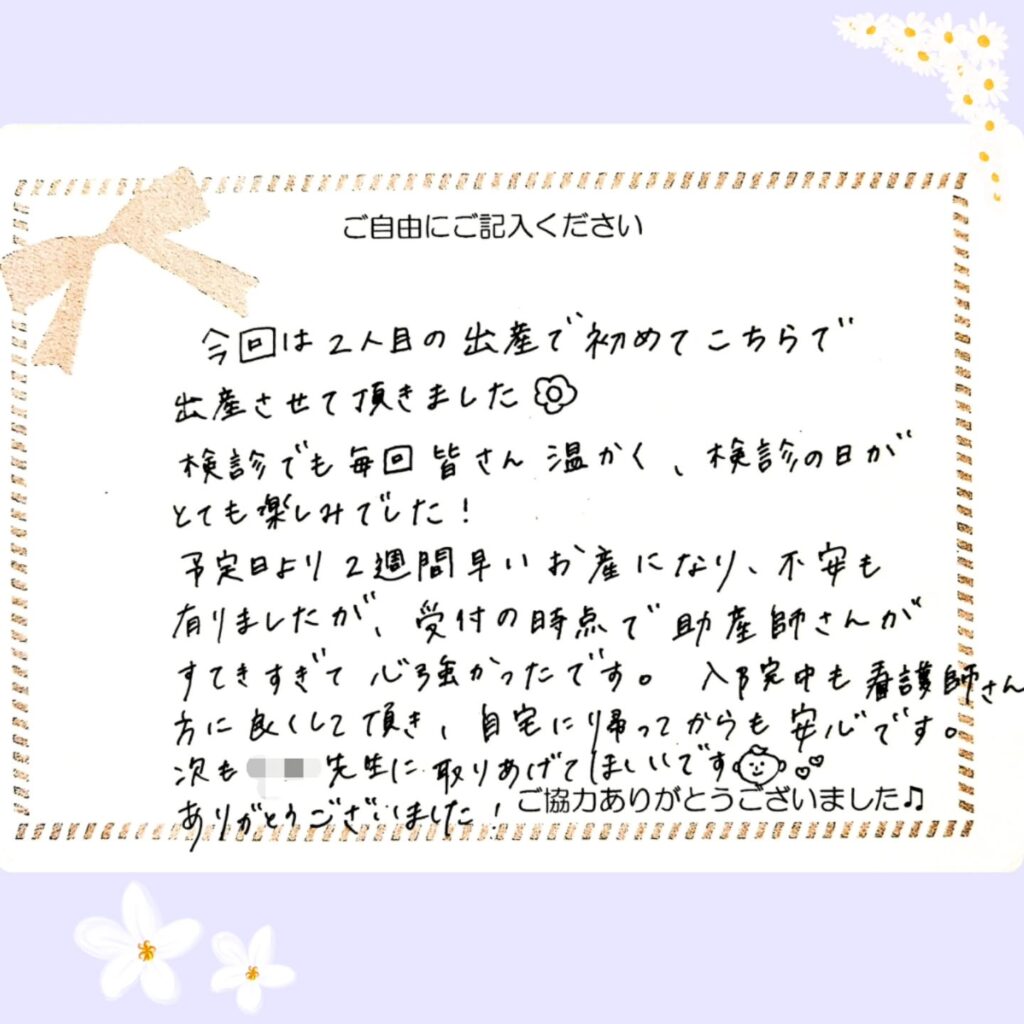 ご自由にご記入ください
今回は2人目の出産で初めてこちらで
出産させて頂きました
検診でも毎回皆さん温かく、検診の日が
とても楽しみでした!
予定日より2週間早いお産になり、不安も
有りましたが、受付の時点で助産師さんが
すてきすぎて心強かったです。入院中も看護師さん
方に良くして頂き、自宅に帰ってからも安心です。
次も 先生に取りあげてほしいです
ありがとうございました!
ご協力ありがとうございました♫